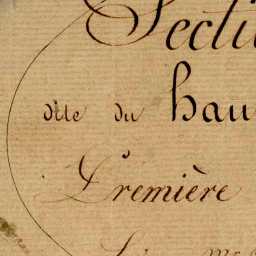 Secti
dite du hau
Première